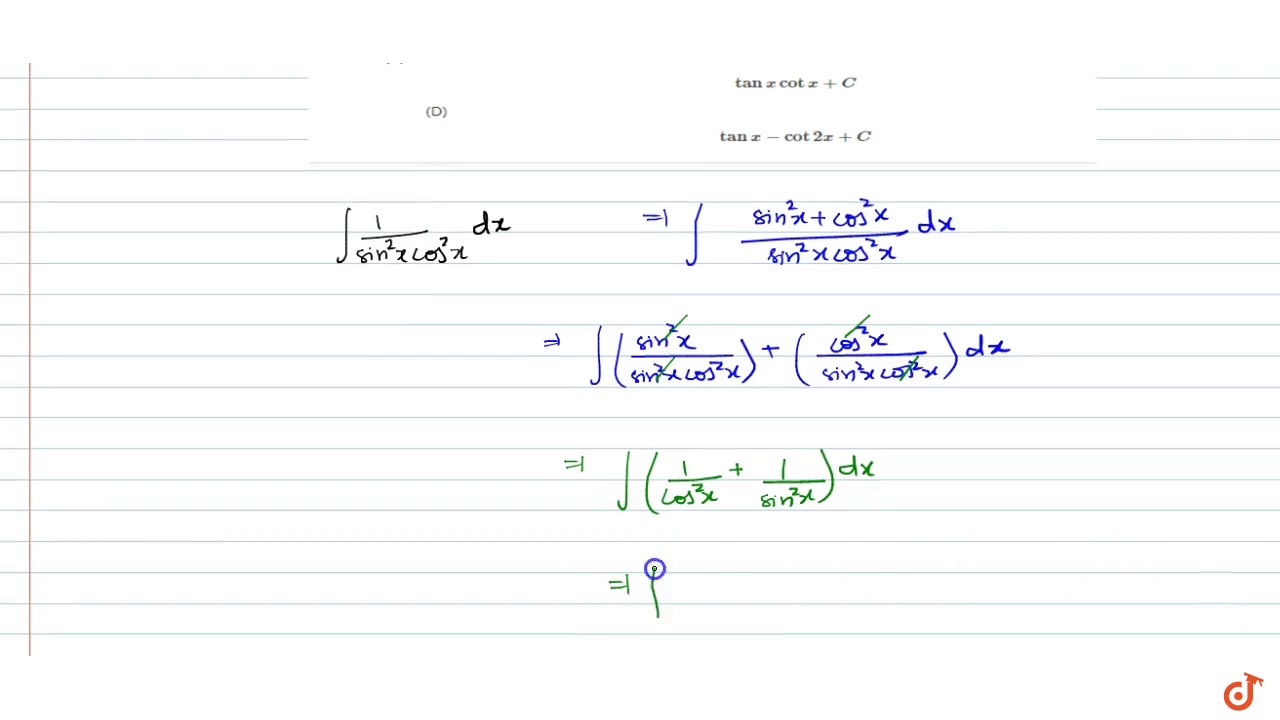 tan x cot x + C
(D)
tan x − cot 2x + C
∫ 1/(sin²x cos²x) dx ⇒ ∫ (sin²x + cos²x)/(sin²x cos²x) dx
⇒ ∫ (sin²x/(sin²x cos²x)) + (cos²x/(sin²x cos²x)) dx
⇒ ∫ (1/cos²x + 1/sin²x) dx
⇒ ∫